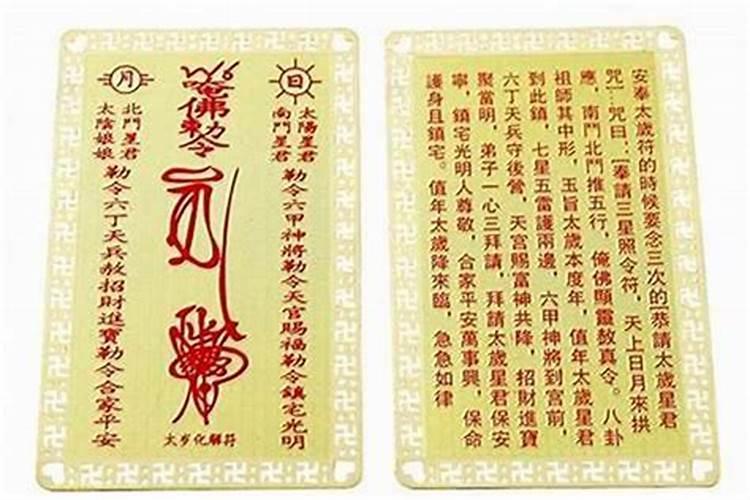 日
太陽星君
南鬥星君
勒令六甲神將勒令天官賜福勒令鎮宅光明
唵佛勅令
月
北鬥星君
太陰娘娘
勒令六丁天兵敖招財進寶勒令合家平安
太岁化解符
安奉太歲符的時候要念三次的[恭請太歲星君
咒]一咒曰:[奉請三星照令符,天上日月來拱
應,南鬥北鬥推五行,俺佛顯靈敖真令。八卦
祖師其中形,玉旨太歲本度年,值年太歲星君
到此鎮,七星五雷護兩邊,六甲神將到宮前,
六丁天兵守後營,天宮賜富神共降,招財進寶
聚當明,弟子一心三拜請,拜請太歲星君保安
寧,鎮宅光明人尊敬,合家平安萬事興,保命
護身且鎮宅。值年太歲降來臨,急急如律